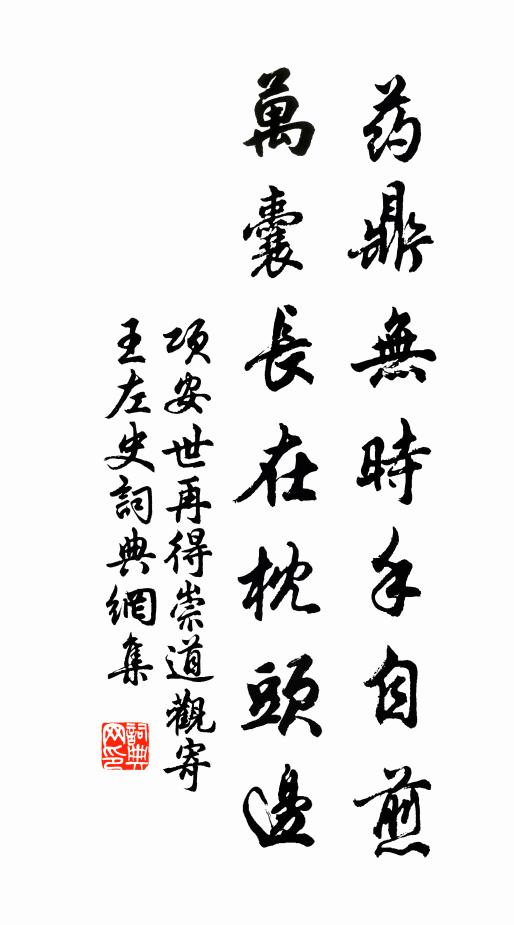 药鼎無時手自煎
萬囊長在枕頭邊
项安世再得崇道觀寄
王左史詞典網集
詞典
网印